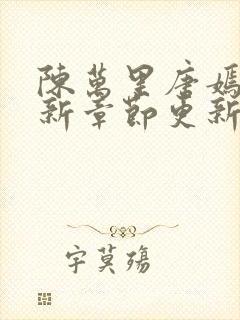 陳萬里唐嫣
新章節更新
字莫殤